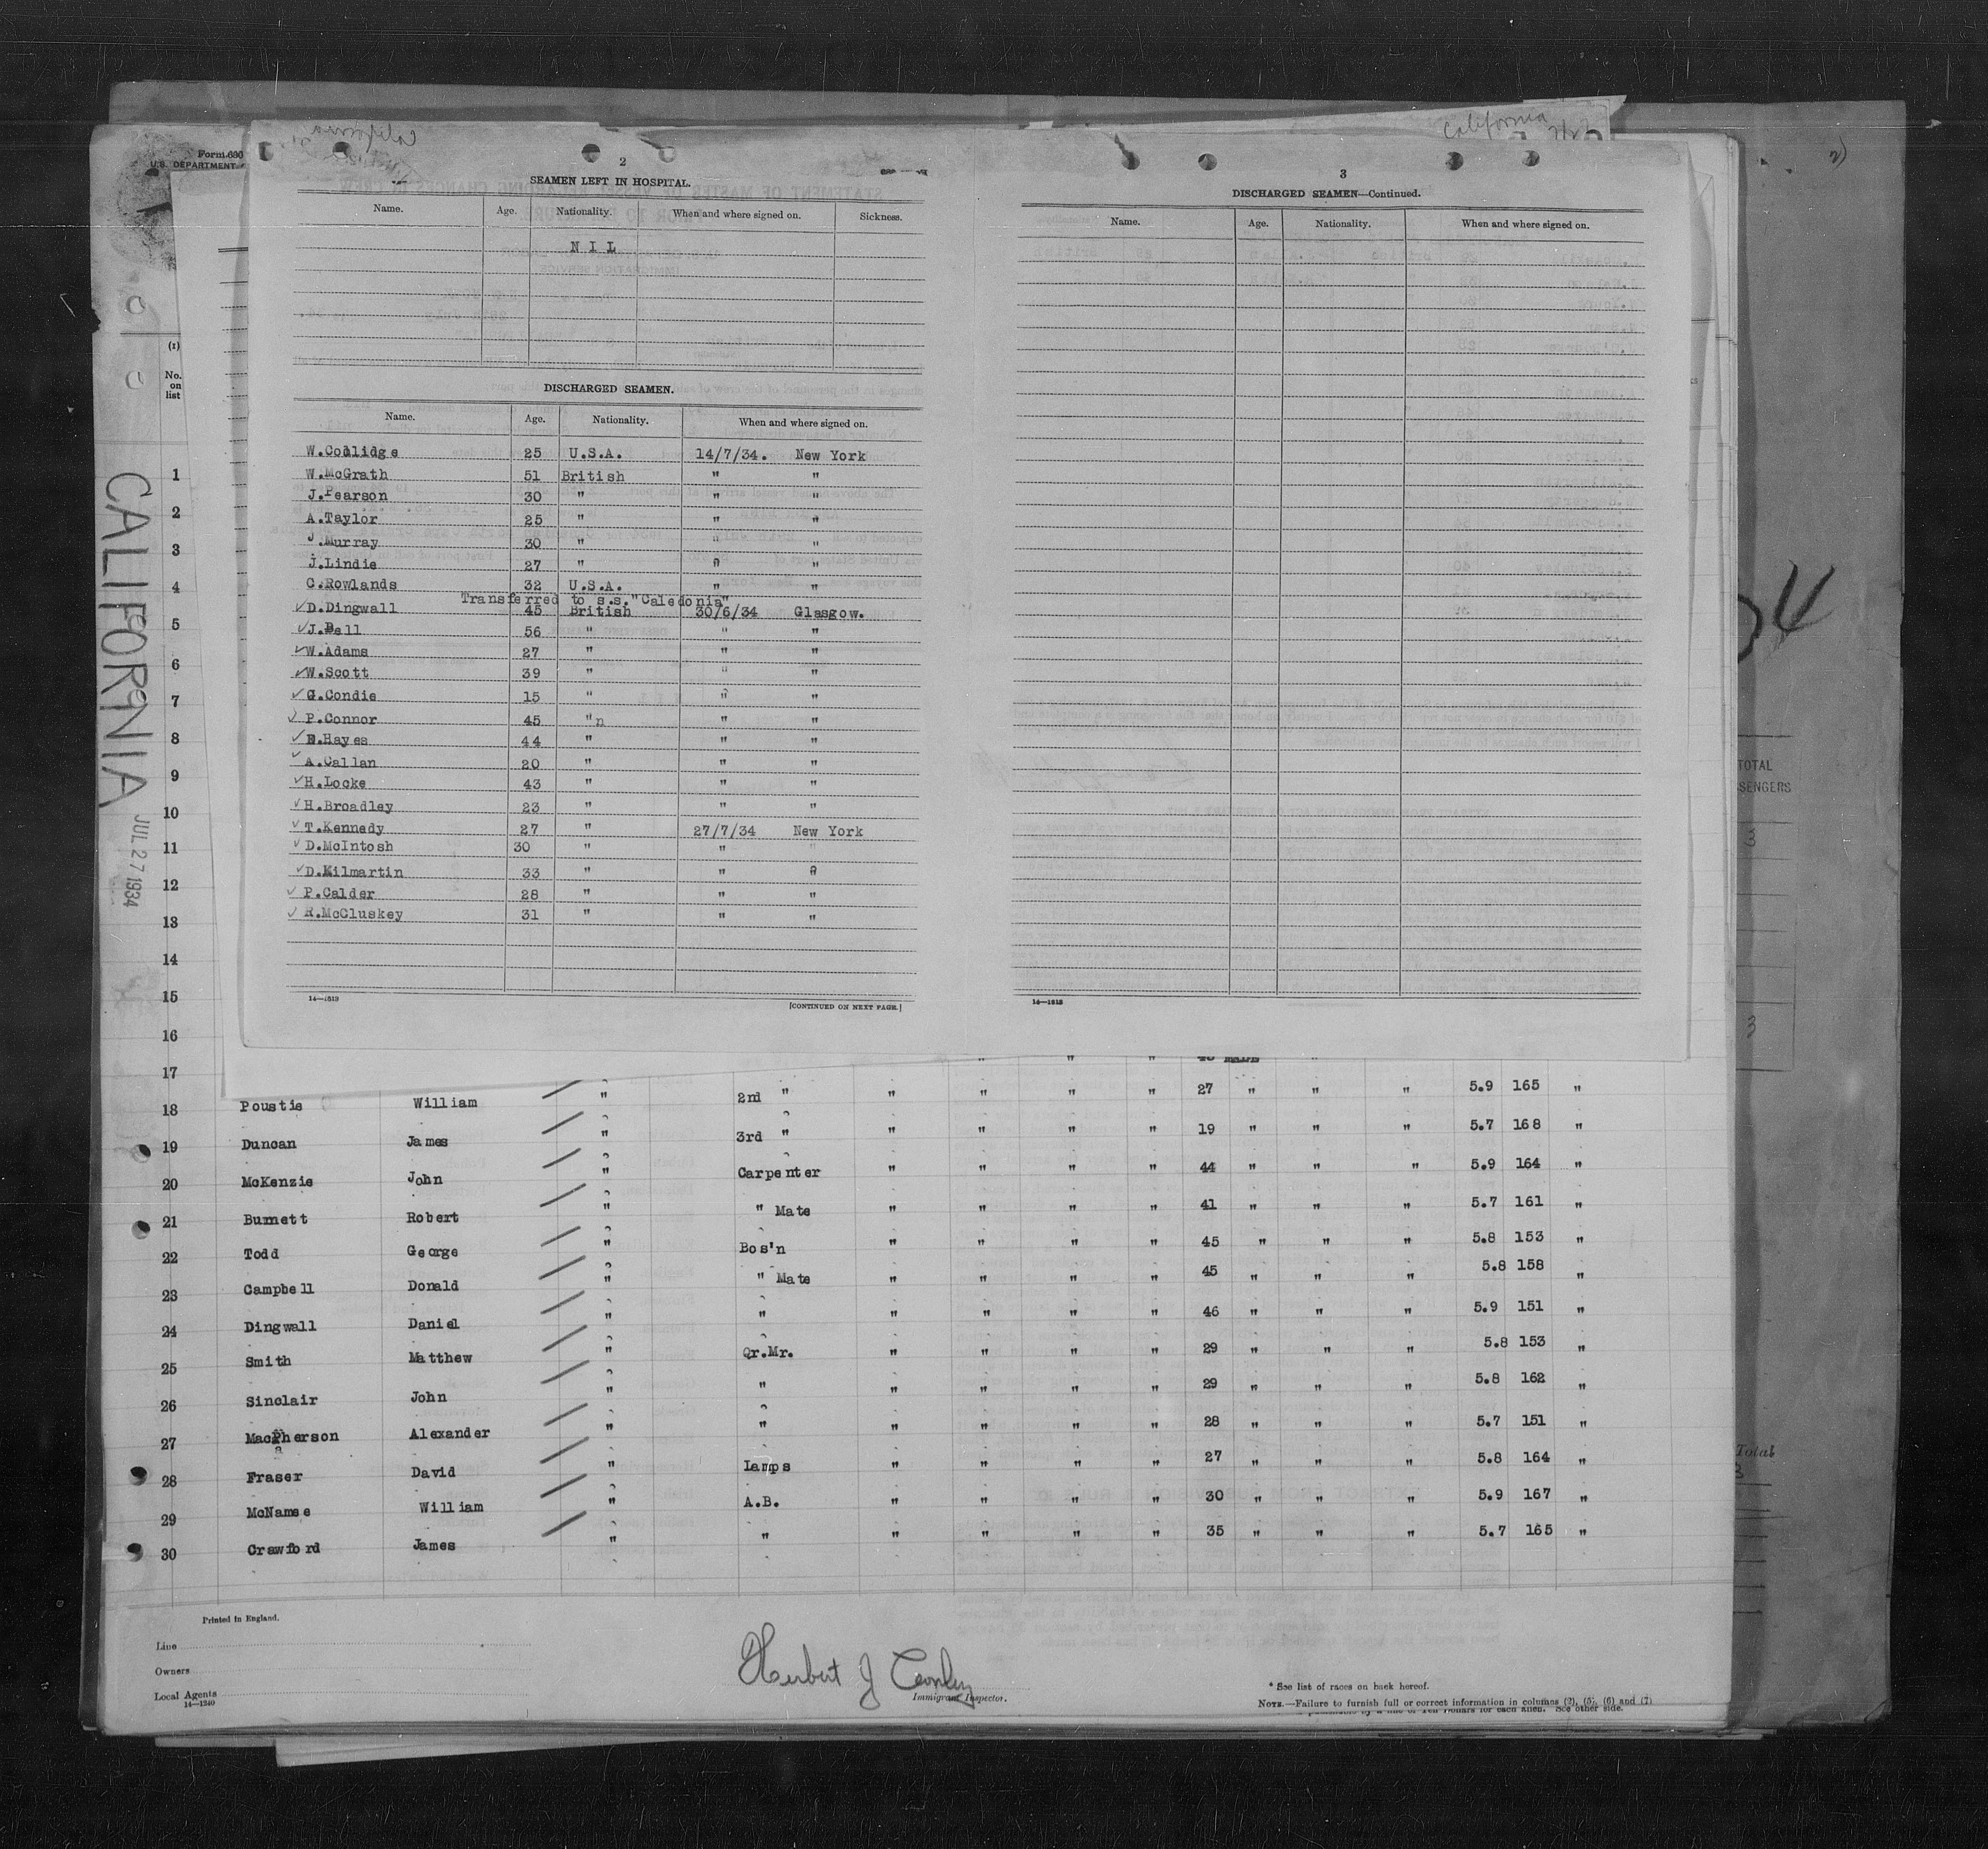 Form 680
U.S. DEPARTMENT
California
2
SEAMEN LEFT IN HOSPITAL.
Name. Age. Nationality. When and where signed on. Sickness.
N I L
DISCHARGED SEAMEN.
Name. Age. Nationality. When and where signed on.
W.Coolidge 25 U.S.A. 14/7/34. New York
W.McGrath 51 British " "
J.Pearson 30 " " "
A.Taylor 25 " " "
J.Murray 30 " " "
J.Lindie 27 " " "
C.Rowlands 32 U.S.A. " "
Transferred to s.s."Caledonia"
✓D.Dingwall 45 British 30/6/34 Glasgow.
✓J.Bell 56 " " "
✓W.Adams 27 " " "
✓W.Scott 39 " " "
✓G.Condie 15 " " "
✓P.Connor 45 "n " "
✓E.Hayes 44 " " "
✓A.Callan 20 " " "
✓H.Locke 43 " " "
✓H.Broadley 23 " " "
✓T.Kennedy 27 " 27/7/34 New York
✓D.McIntosh 30 " " "
✓D.Kilmartin 33 " " "
✓P.Calder 28 " " "
✓R.McCluskey 31 " " "
14—1513
[CONTINUED ON NEXT PAGE.]
3
DISCHARGED SEAMEN—Continued.
Name. Age. Nationality. When and where signed on.
14—1513
(1)
No.
on
list
1
2
3
4
5
6
7
8
9
10
11
12
13
14
15
16
17
18 Poustie William " 2nd " " " " " 27 " " " 5.9 165 "
19 Duncan James " 3rd " " " " " 19 " " " 5.7 168 "
20 McKenzie John " Carpenter " " " " 44 " " " 5.9 164 "
21 Burnett Robert " " Mate " " " " 41 " " " 5.7 161 "
22 Todd George " Bos'n " " " " 45 " " " 5.8 153 "
23 Campbell Donald " " Mate " " " " 45 " " " 5.8 158 "
24 Dingwall Daniel " " " " " " 46 " " " 5.9 151 "
25 Smith Matthew " Qr.Mr. " " " " 29 " " " 5.8 153 "
26 Sinclair John " " " " " " 29 " " " 5.8 162 "
27 MacPherson Alexander " " " " " " 28 " " " 5.7 151 "
28 Fraser David " Lamps " " " " 27 " " " 5.8 164 "
29 McNamee William " A.B. " " " " 30 " " " 5.9 167 "
30 Crawford James " " " " " " 35 " " " 5.7 165 "
CALIFORNIA
JUL 27 1934
Printed in England.
Line
Owners
Local Agents
14—1240
Herbert J
Immigrant Inspector.
* See list of races on back hereof.
NOTE.—Failure to furnish full or correct information in columns (2), (5), (6) and (7)
is punishable by a fine of Ten Dollars for each alien. See other side.
4
TOTAL
SSENGERS
3
3
Total
3